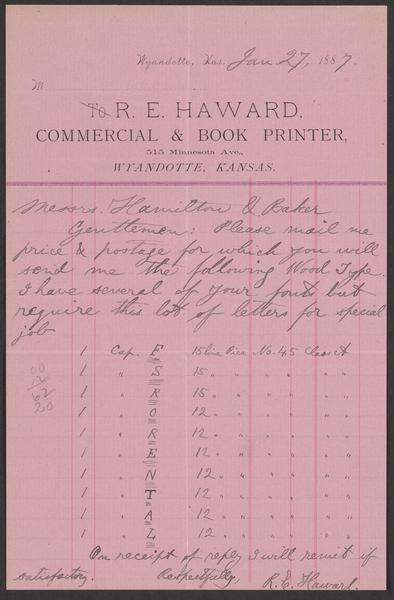 Wyandotte, Kas. Jan 27, 1887.
M
To R. E. HAWARD,
COMMERCIAL & BOOK PRINTER,
515 Minnesota Ave.,
WYANDOTTE, KANSAS.
Messrs. Hamilton & Baker
Gentlemen: Please mail me
price & postage for which you will
send me the following Wood Type.
I have several of your fonts but
require this lot of letters for special
job
1 Cap. E 15 line Pica No. 45 Class A
1 " S 15 " " " " "
1 " R 15 " " " " "
1 " O 12 " " " " "
1 " R 12 " " " " "
1 " E 12 " " " " "
1 " N 12 " " " " "
1 " T 12 " " " " "
1 " A 12 " " " " "
1 " L 12 " " " " "
62
20
On receipt of reply I will remit if
satisfactory. Respectfully, R. E. Haward.